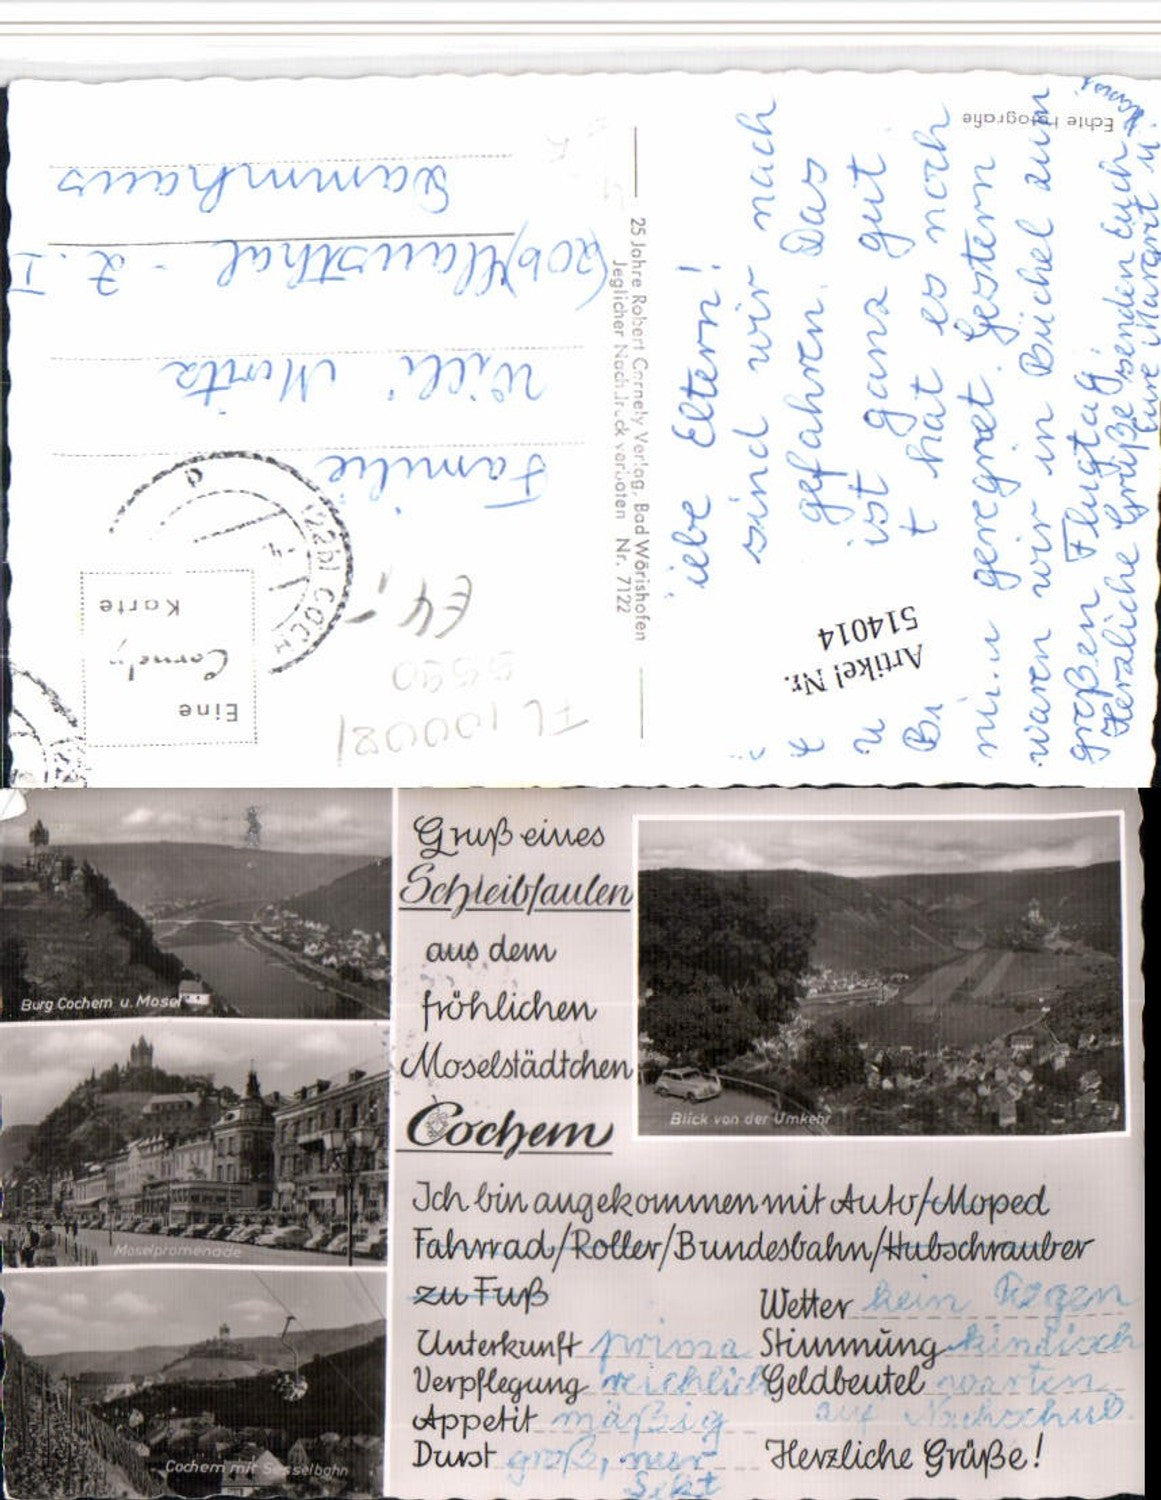 Echte Fotografie
iebe Eltern!
sind wir nach
gefahren. Das
ist ganz gut
t hat es noch
geregnet. Gestern
waren wir in Büchel zum
großen Flugtag.
Herzliche Grüße senden Euch
Eure Margrit u.
Artikel Nr.
514014
25 Jahre Robert Cornely Verlag, Bad Wörishofen
Jeglicher Nachdruck verboten Nr. 7122
Eine
Cornely
Karte
(22b) COCH
€4,-
5590
FL10002
Familie
Willi Moritz
(20b) Clausthal - Z. I
Dammhaus
Gruß eines
Schreibfaulen
aus dem
fröhlichen
Moselstädtchen
Cochem
Burg Cochem u. Mosel
Moselpromenade
Cochem mit Sesselbahn
Blick von der Umkehr
Ich bin angekommen mit Auto/Moped
Fahrrad/Roller/Bundesbahn/Hubschrauber
zu Fuß
Wetter kein Regen
Unterkunft prima Stimmung kindisch
Verpflegung reichlich Geldbeutel warten
Appetit mäßig auf Nachschub.
Durst groß, nur Herzliche Grüße!
Sekt